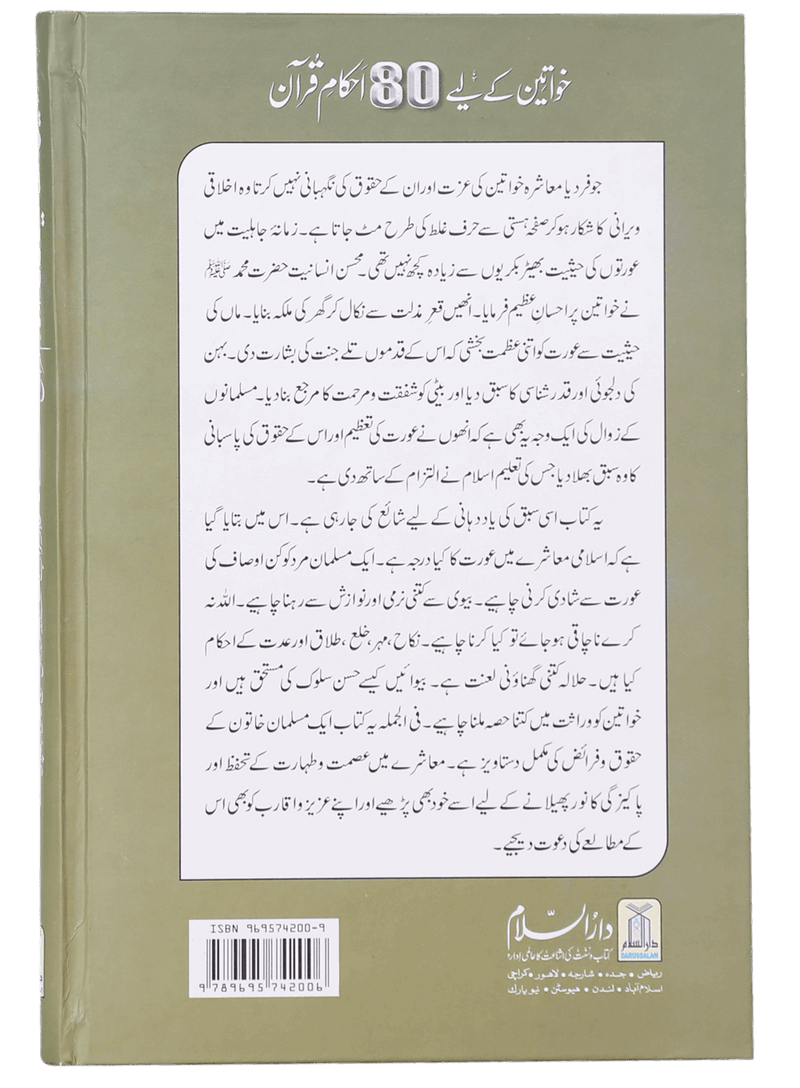 خواتین کے لیے 80 احکامِ قُرآن
جو فرد یا معاشرہ خواتین کی عزت اور ان کے حقوق کی نگہبانی نہیں کرتا وہ اخلاقی
ویرانی کا شکار ہو کر صفحۂ ہستی سے حرف غلط کی طرح مٹ جاتا ہے۔ زمانۂ جاہلیت میں
عورتوں کی حیثیت بھیڑ بکریوں سے زیادہ کچھ نہیں تھی۔ محسن انسانیت حضرت محمد ﷺ
نے خواتین پر احسانِ عظیم فرمایا۔ انھیں قعرِ مذلت سے نکال کر گھر کی ملکہ بنایا۔ ماں کی
حیثیت سے عورت کو اتنی عظمت بخشی کہ اس کے قدموں تلے جنت کی بشارت دی۔ بہن
کی دلجوئی اور قدر شناسی کا سبق دیا اور بیٹی کو شفقت و مرحمت کا مرجع بنا دیا۔ مسلمانوں
کے زوال کی ایک وجہ یہ بھی ہے کہ انھوں نے عورت کی تعظیم اور اس کے حقوق کی پاسبانی
کا وہ سبق بھلا دیا جس کی تعلیم اسلام نے التزام کے ساتھ دی ہے۔
یہ کتاب اسی سبق کی یاد دہانی کے لیے شائع کی جا رہی ہے۔ اس میں بتایا گیا
ہے کہ اسلامی معاشرے میں عورت کا کیا درجہ ہے۔ ایک مسلمان مرد کو کن اوصاف کی
عورت سے شادی کرنی چاہیے۔ بیوی سے کتنی نرمی اور نوازش سے رہنا چاہیے۔ اللہ نہ
کرے ناچاقی ہو جائے تو کیا کرنا چاہیے۔ نکاح، مہر، خلع، طلاق اور عدت کے احکام
کیا ہیں۔ حلالہ کتنی گھناؤنی لعنت ہے۔ بیوائیں کیسے حسن سلوک کی مستحق ہیں اور
خواتین کو وراثت میں کتنا حصہ ملنا چاہیے۔ فی الجملہ یہ کتاب ایک مسلمان خاتون کے
حقوق و فرائض کی مکمل دستاویز ہے۔ معاشرے میں عصمت و طہارت کے تحفظ اور
پاکیزگی کا نور پھیلانے کے لیے اسے خود بھی پڑھیے اور اپنے عزیز و اقارب کو بھی اس
کے مطالعے کی دعوت دیجیے۔
دارُالسّلام
کتاب و سُنّت کی اشاعت کا عالمی ادارہ
ریاض • جدہ • شارجہ • لاھور • کراچی
اسلام آباد • لندن • ھیوسٹن • نیو یارک
دارالسلام
DARUSSALAM
ISBN 969574200-9
9 789695 742006